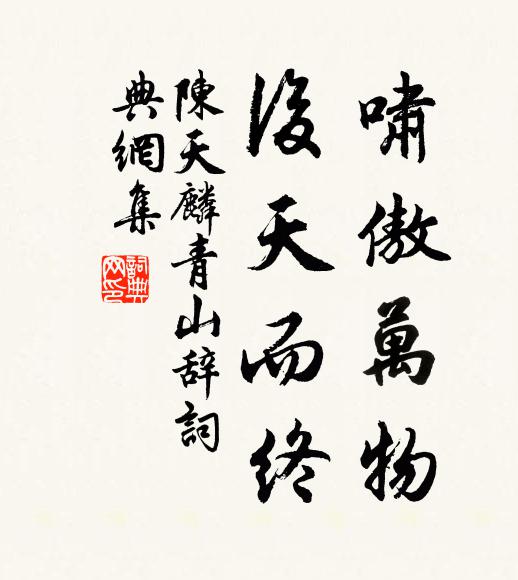 嘯傲萬物
後天而終
陳天麟青山辞詞
典網集
詞典
网印